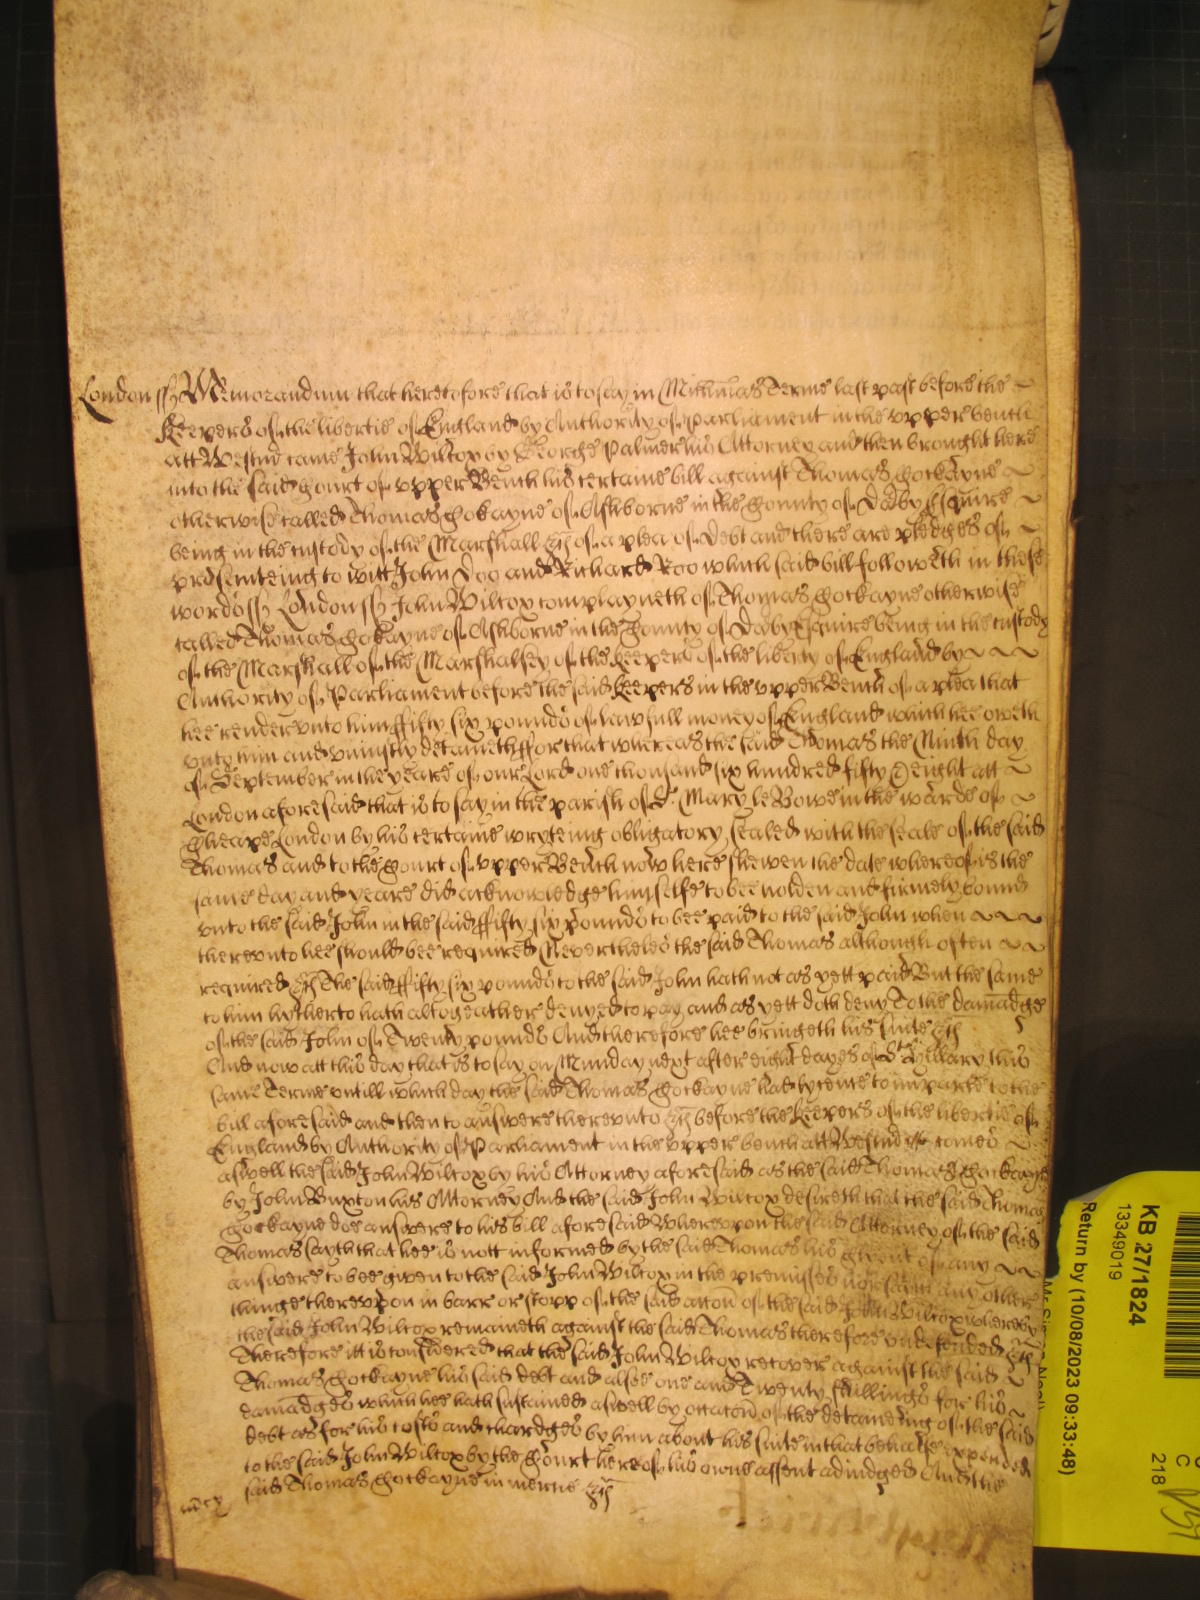 London ss Memorandum that heretofore that is to say in Michmas Terme last past before the
Keepers of the libertie of England by Authority of Parliament in the upper bench
att Westmr came John Wilcox by George Palmer his Attorney and then brought here
into the said Court of upper Bench his certaine bill against Thomas Cockayne
otherwise called Thomas Cokayne of Ashborne in the County of Derby Esquire
being in the custody of the Marshall &c of a plea of Debt and there are pledges of
prosecuteing to witt John Doo and Richard Roo which said bill followeth in these
words ss London ss John Wilcox complayneth of Thomas Cockayne otherwise
called Thomas Cokayne of Ashborne in the County of Derby Esquire being in the custody
of the Marshall of the Marshalsey of the keepers of the liberty of England by
Authority of Parliament before the said keepers in the upper Bench of a plea that
hee render unto him ffifty six pounds of lawfull money of England which hee oweth
unto him and uniustly detaineth ffor that whereas the said Thomas the Ninth day
of September in the yeare of our Lord one thousand six hundred fifty & eight att
London aforesaid that is to say in the parish of St Mary le Bowe in the warde of
Cheape London by his certaine wryteing obligatory sealed with the seale of the said
Thomas and to the Court of upper Bench now here shewen the date whereof is the
same day and yeare did acknowledge himselfe to bee holden and firmely bound
unto the said John in the said ffifty six pounds to bee paid to the said John when
thereunto hee should bee required Neverthelesse the said Thomas although often
required &c The said ffifty six pounds to the said John hath not as yett paid But the same
to him hytherto hath altogeather denyed to pay and as yett doth deny To the damadge
of the said John of Twenty pounds And therefore hee bringeth his suite &c
And now att this day that is to say on Munday next after eight dayes of St Hyllary this
same Terme untill which day the said Thomas Cockayne had lycence to imparle to the
bill aforesaid and then to answere thereunto &c before the keepers of the libertie of
England by Authority of Parliament in the upper bench att Westmr comes
aswell the said John Wilcox by his Attorney aforesaid as the said Thomas Cockayne
by John Buxton his Attorney And the said John Wilcox desireth that the said Thomas
Cockayne doe answere to his bill aforesaid Whereupon the said Attorney of the said
Thomas sayth that hee is nott informed by the said Thomas his of any
answere to bee given to the said John Wilcox in the premisses nor any other
thinge thereupon in barr or stopp of the said accon of the said John Wilcox whereby
the said John Wilcox remaineth against the said Thomas therefore undefended &c
Therefore itt is considered that the said John Wilcox recover against the said
Thomas Cockayne his said debt and alsoe one and Twenty shillings for his
damadges which hee hath sustained aswell by occacon of the detaineing of the said
debt as for his costs and chardges by him about his suite in that behalfe expended
to the said John Wilcox by the Court here of his owne assent adiudged And the
said Thomas Cockayne in mercie &c
KB 27/1824
13349019
Return by (10/08/2023 09:33:48)
C
218